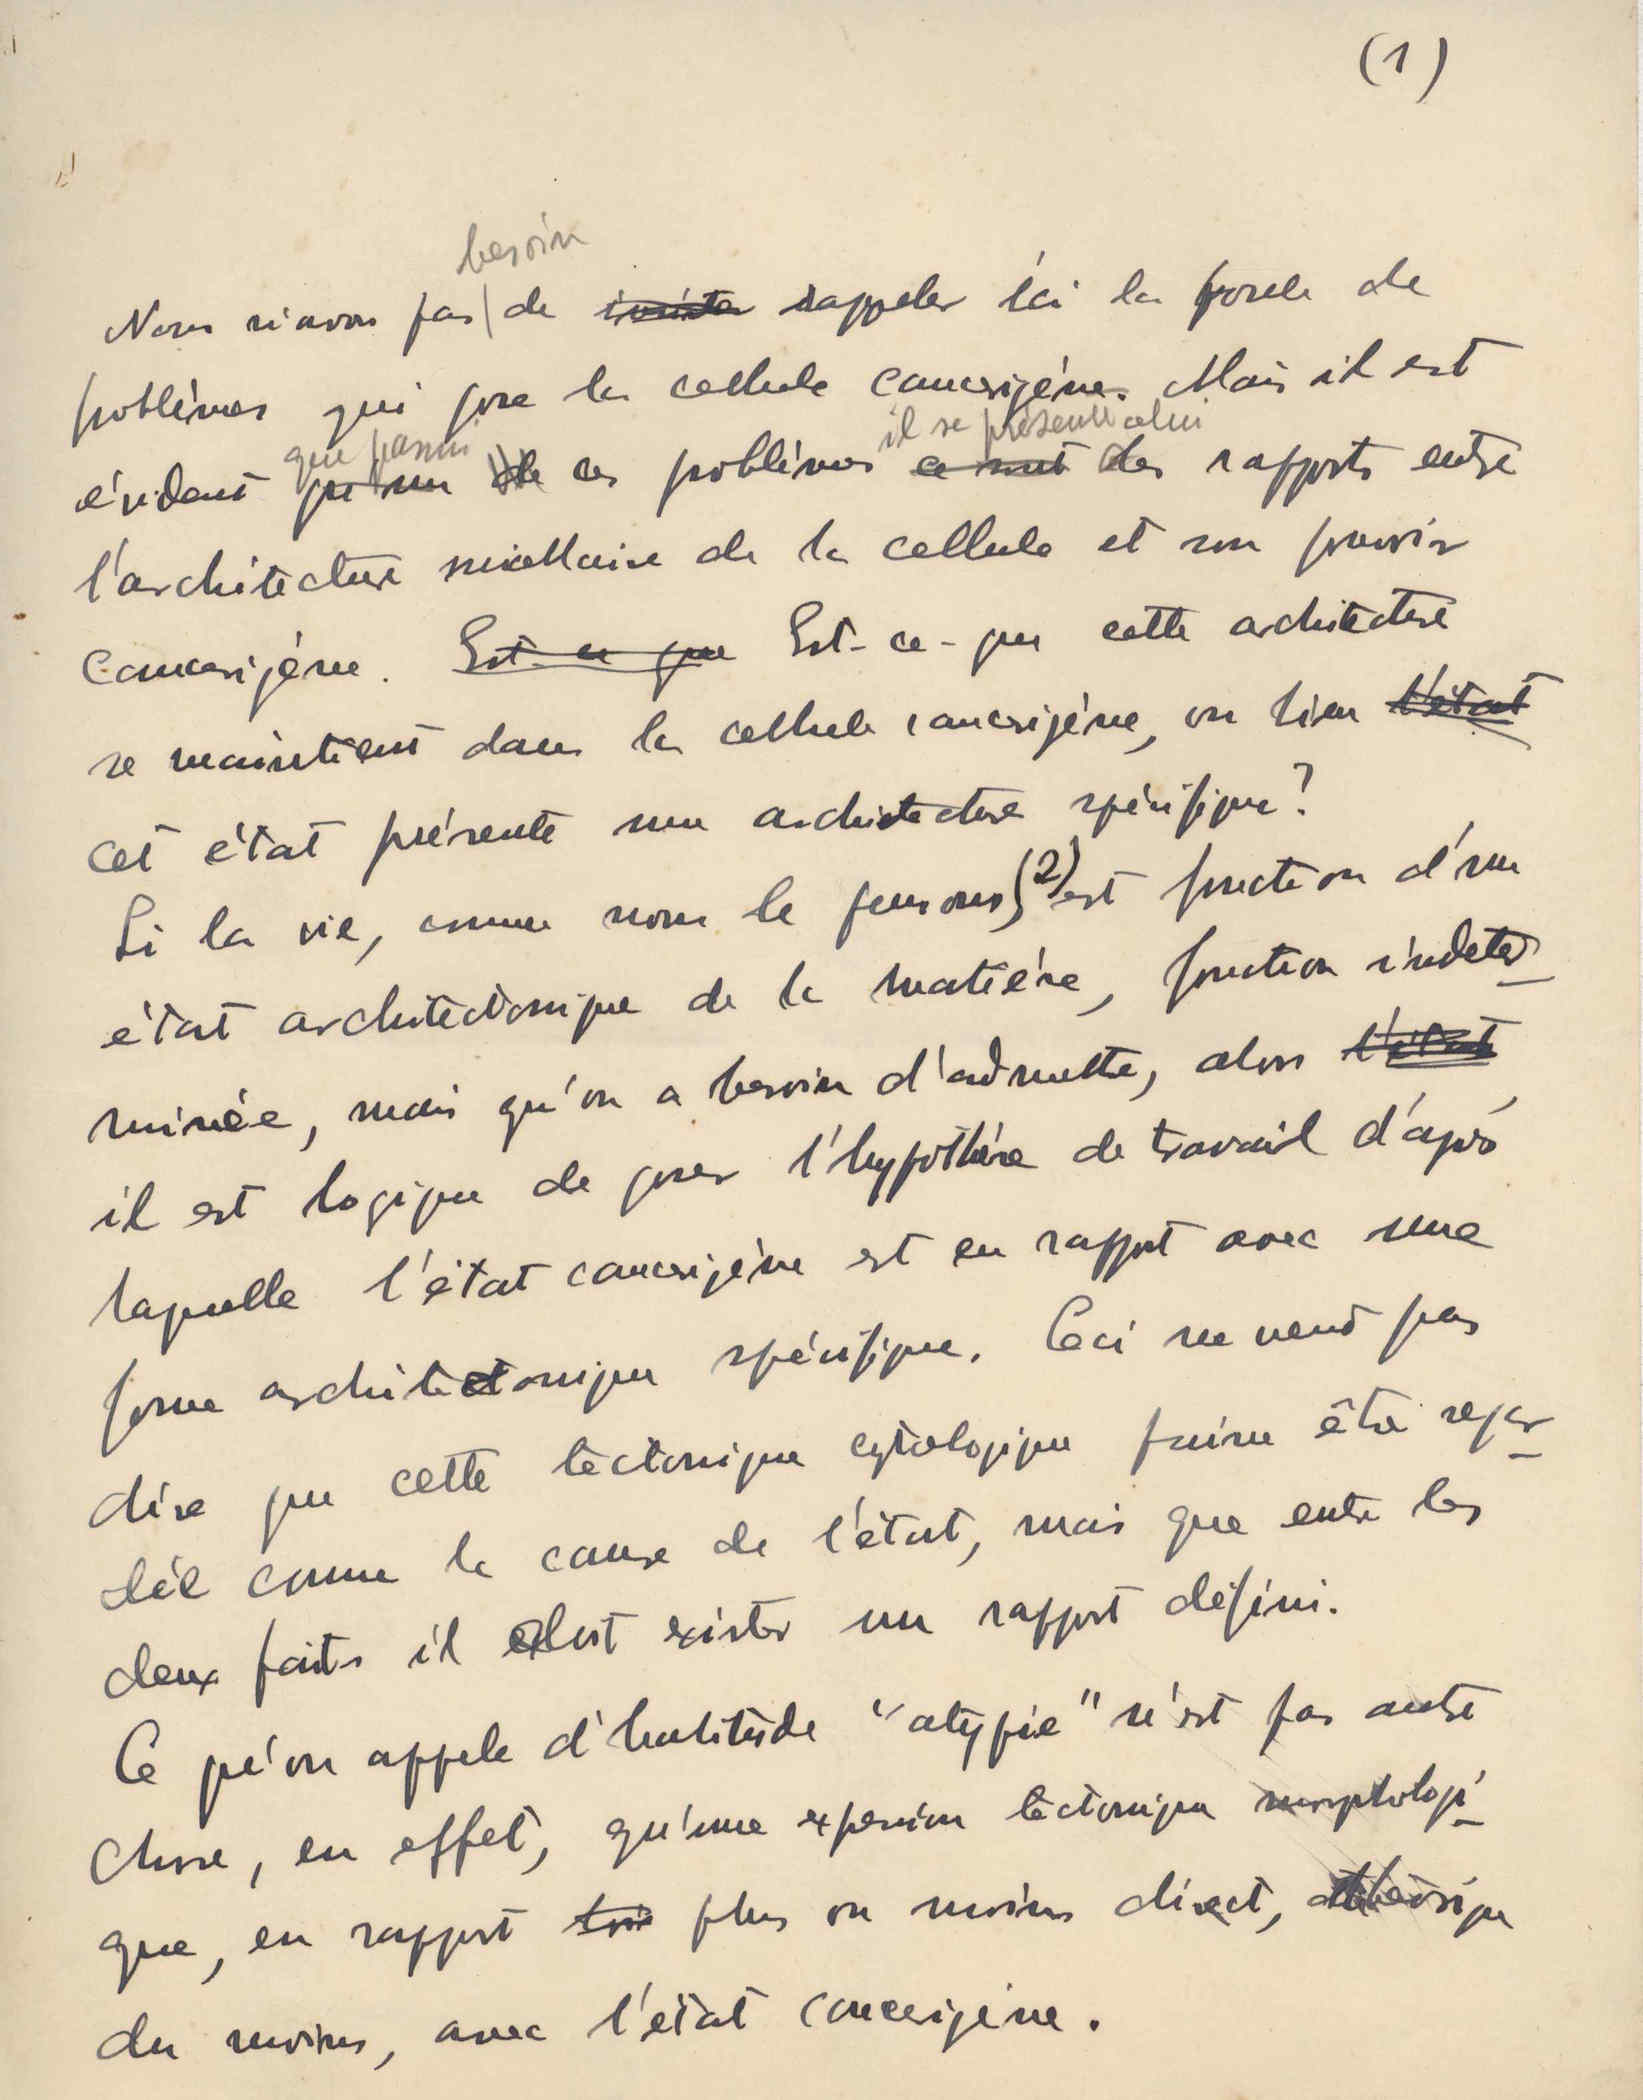 (1)
besoin
Nous n'avons pas de insister rappeler ici la foule de
problèmes qui pose la cellule cancerigène. Mais il est
que parmi il se présente celui
évident qu'un de ces problèmes ce sont des rapports entre
l'architecture micellaire de la cellule et son pouvoir
cancerigène. Est-ce que Est-ce-que cette architecture
se maintient dans la cellule cancerigène, ou bien l'état
cet état présente une architecture spécifique?
Si la vie, comme nous le pensons, (2) est fonction d'un
état architectonique de la matière, fonction indeter-
minée, mais qu'on a besoin d'admettre, alors l'état
il est logique de poser l'hypothèse de travail d'après
laquelle l'état cancerigène est en rapport avec une
forme architectonique spécifique. Ceci ne veut pas
dire que cette tectonique cytologique puisse être regar-
déé comme la cause de l'état, mais que entre les
deux faits il doit exister un rapport défini.
Ce qu'on appele d'habitude "atypie" n'est pas autre
chose, en effet, qu'une expression tectonique morphologi-
que, en rapport plus ou moins direct, théorique
du moins, avec l'état cancerigène.